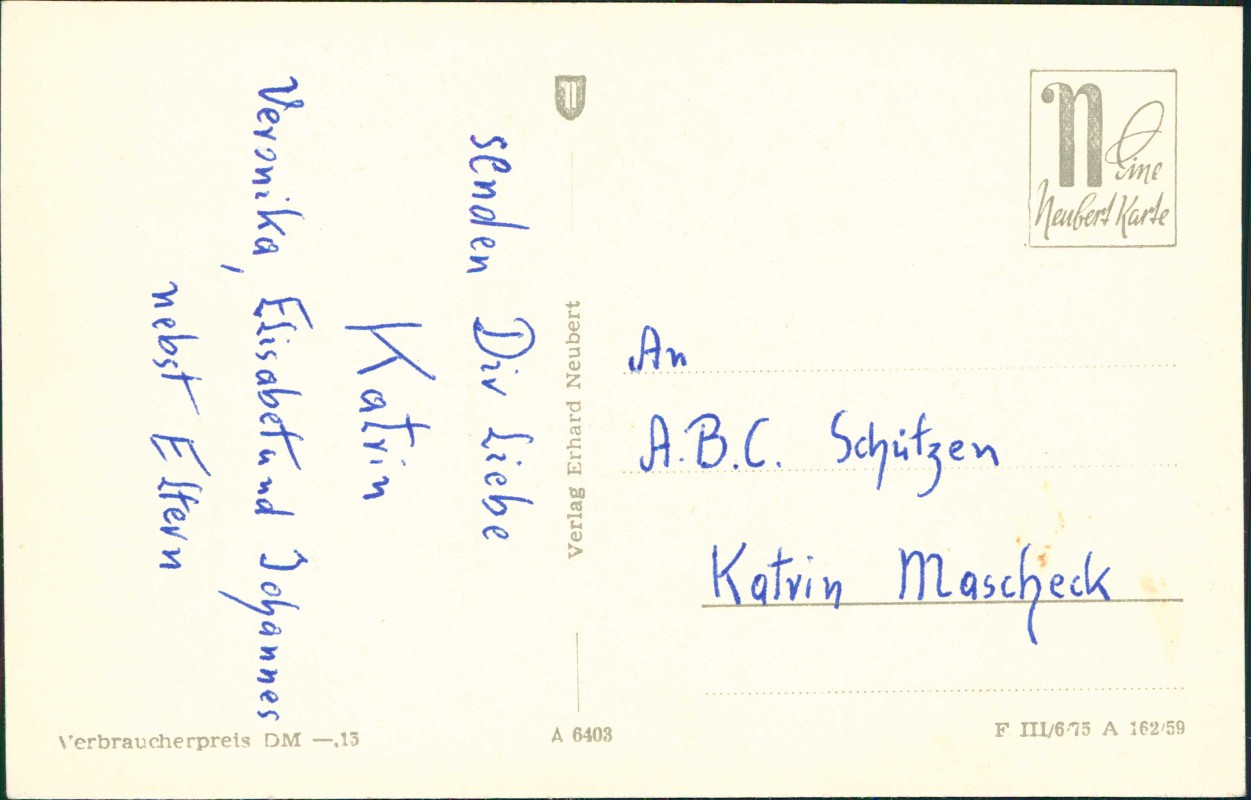 senden Dir Liebe
Katrin
Veronika, Elisabet und Johannes
nebst Eltern
Verlag Erhard Neubert
Eine
Neubert Karte
An
A.B.C. Schützen
Katrin Mascheck
Verbraucherpreis DM —,15
A 6403
F III/6/75 A 162/59